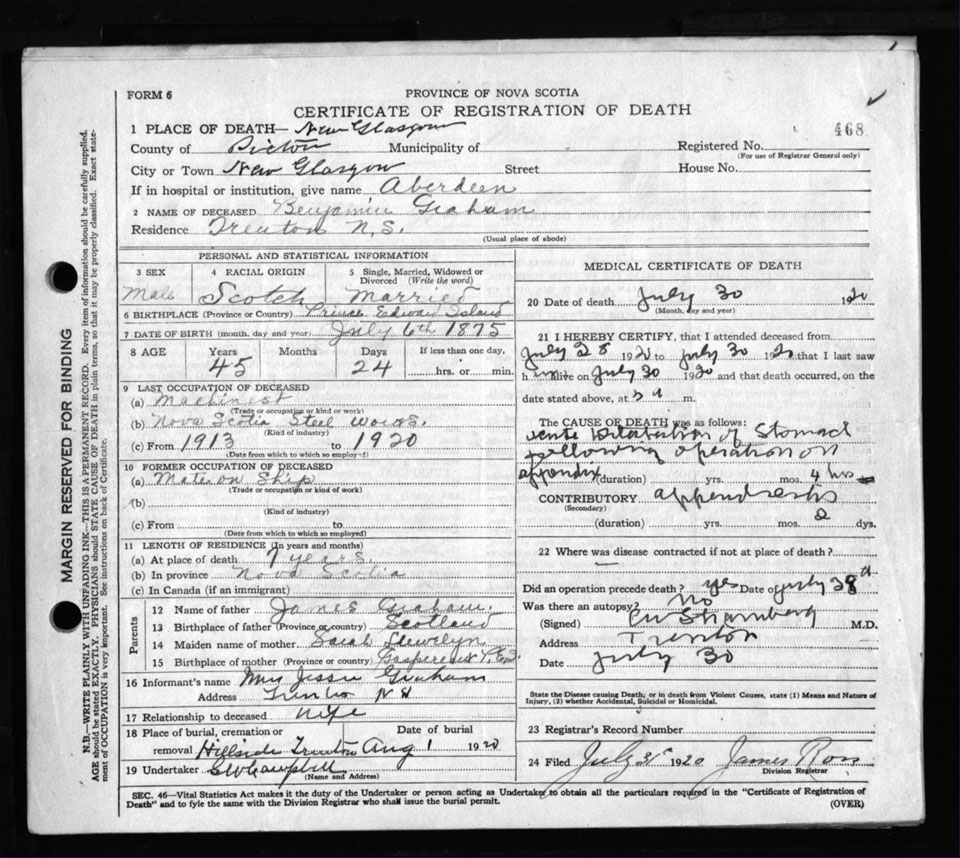 FORM 6
PROVINCE OF NOVA SCOTIA
CERTIFICATE OF REGISTRATION OF DEATH
1 PLACE OF DEATH— New Glasgow
468
County of Pictou Municipality of Registered No.
(For use of Registrar General only)
City or Town New Glasgow Street House No.
If in hospital or institution, give name Aberdeen
2 NAME OF DECEASED Benjamin Graham
Residence Trenton N.S.
(Usual place of abode)
PERSONAL AND STATISTICAL INFORMATION
3 SEX 4 RACIAL ORIGIN 5 Single, Married, Widowed or Divorced (Write the word)
Male Scotch Married
6 BIRTHPLACE (Province or Country) Prince Edward Island
7 DATE OF BIRTH (month, day and year) July 6th 1875
8 AGE Years Months Days If less than one day,
45 24 hrs. or min.
9 LAST OCCUPATION OF DECEASED
(a) Machinest
(Trade or occupation or kind or work)
(b) Nova Scotia Steel Works.
(Kind of industry)
(c) From 1913 to 1920
(Date from which to which so employed)
10 FORMER OCCUPATION OF DECEASED
(a) Mate on Ship
(Trade or occupation)
(b)
(Kind of industry)
(c) From to
(Date from which to which so employed)
11 LENGTH OF RESIDENCE (In years and months)
(a) At place of death 7 years.
(b) In province Nova Scotia
(c) In Canada (if an immigrant)
Parents
12 Name of father James Graham.
13 Birthplace of father (Province or country) Scotland
14 Maiden name of mother Sarah Llewelyn
15 Birthplace of mother (Province or country) Gaspereaux P.E.I.
16 Informant's name Mrs Jessie Graham
Address Trenton N S
17 Relationship to deceased Wife
18 Place of burial, cremation or removal Date of burial
Hillside Trenton Aug 1 1920
19 Undertaker Campbell
(Name and Address)
MEDICAL CERTIFICATE OF DEATH
20 Date of death July 30 1920
(Month, day and year)
21 I HEREBY CERTIFY, that I attended deceased from
July 28 1920 to July 30 1920 that I last saw
h im alive on July 30 1920 and that death occurred, on the
date stated above, at m.
The CAUSE OF DEATH was as follows:
acute Dilatation of Stomach
following operation on
appendix (duration) yrs. mos. 4 hrs
CONTRIBUTORY appendicitis
(Secondary)
(duration) yrs. mos. 2 dys.
22 Where was disease contracted if not at place of death?
Did an operation precede death? yes Date of July 28
Was there an autopsy? No
(Signed) M.D.
Address Trenton
Date July 30
State the Disease causing Death, or in death from Violent Causes, state (1) Means and Nature of
Injury, (2) whether Accidental, Suicidal or Homicidal.
23 Registrar's Record Number
24 Filed July 31 1920 James Ross
Division Registrar
SEC. 46—Vital Statistics Act makes it the duty of the Undertaker or person acting as Undertaker to obtain all the particulars required in the "Certificate of Registration of
Death" and to fyle the same with the Division Registrar who shall issue the burial permit.
(OVER)
MARGIN RESERVED FOR BINDING
N.B.—WRITE PLAINLY WITH UNFADING INK—THIS IS A PERMANENT RECORD. Every item of information should be carefully supplied.
AGE should be stated EXACTLY. PHYSICIANS should STATE CAUSE OF DEATH in plain terms, so that it may be properly classified. Exact state-
ment of OCCUPATION is very important. See instructions on back of Certificate.